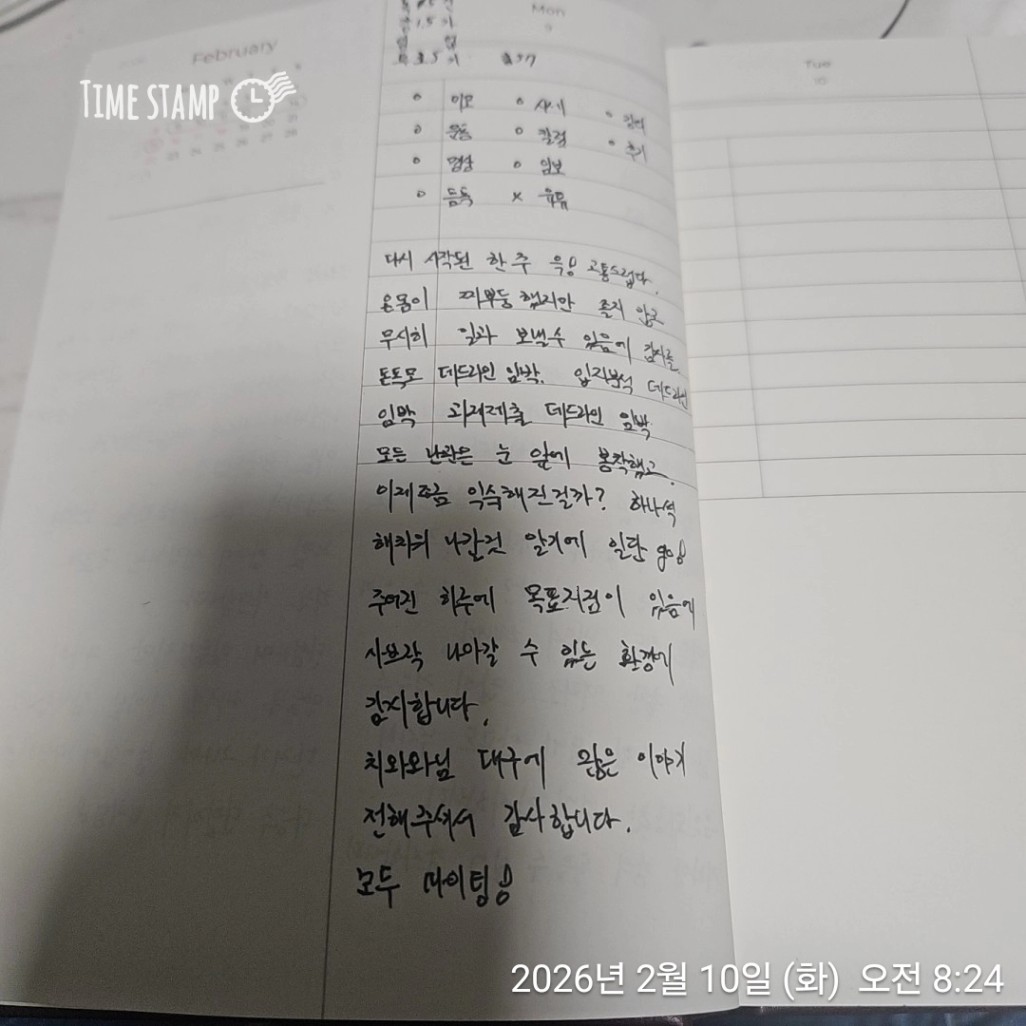 February
TIME STAMP
Mon
9
Tue
10
o 미모 o 식사 o 감사
o 운동 o 칼럼 o 후기
o 명상 o 임보
o 등록 x 유튭
다시 시작된 한 주 윽! 고통스럽다.
온몸이 찌뿌둥 했지만 졸지 않고
무사히 일과 보낼수 있음에 감사를
돈독모 데드라인 임박. 입지분석 데드라인
임박 과제제출 데드라인 임박
모든 난관은 눈 앞에 봉착했고.
이제 조금 익숙해진걸까? 하나씩
해치워 나갈것 알기에 일단 go!
주어진 하루에 목표지점이 있음에
사브작 나아갈 수 있는 환경에
감사합니다.
치와와님 대구에 많은 이야기
전해주셔서 감사합니다.
모두 파이팅!
2026년 2월 10일 (화) 오전 8:24